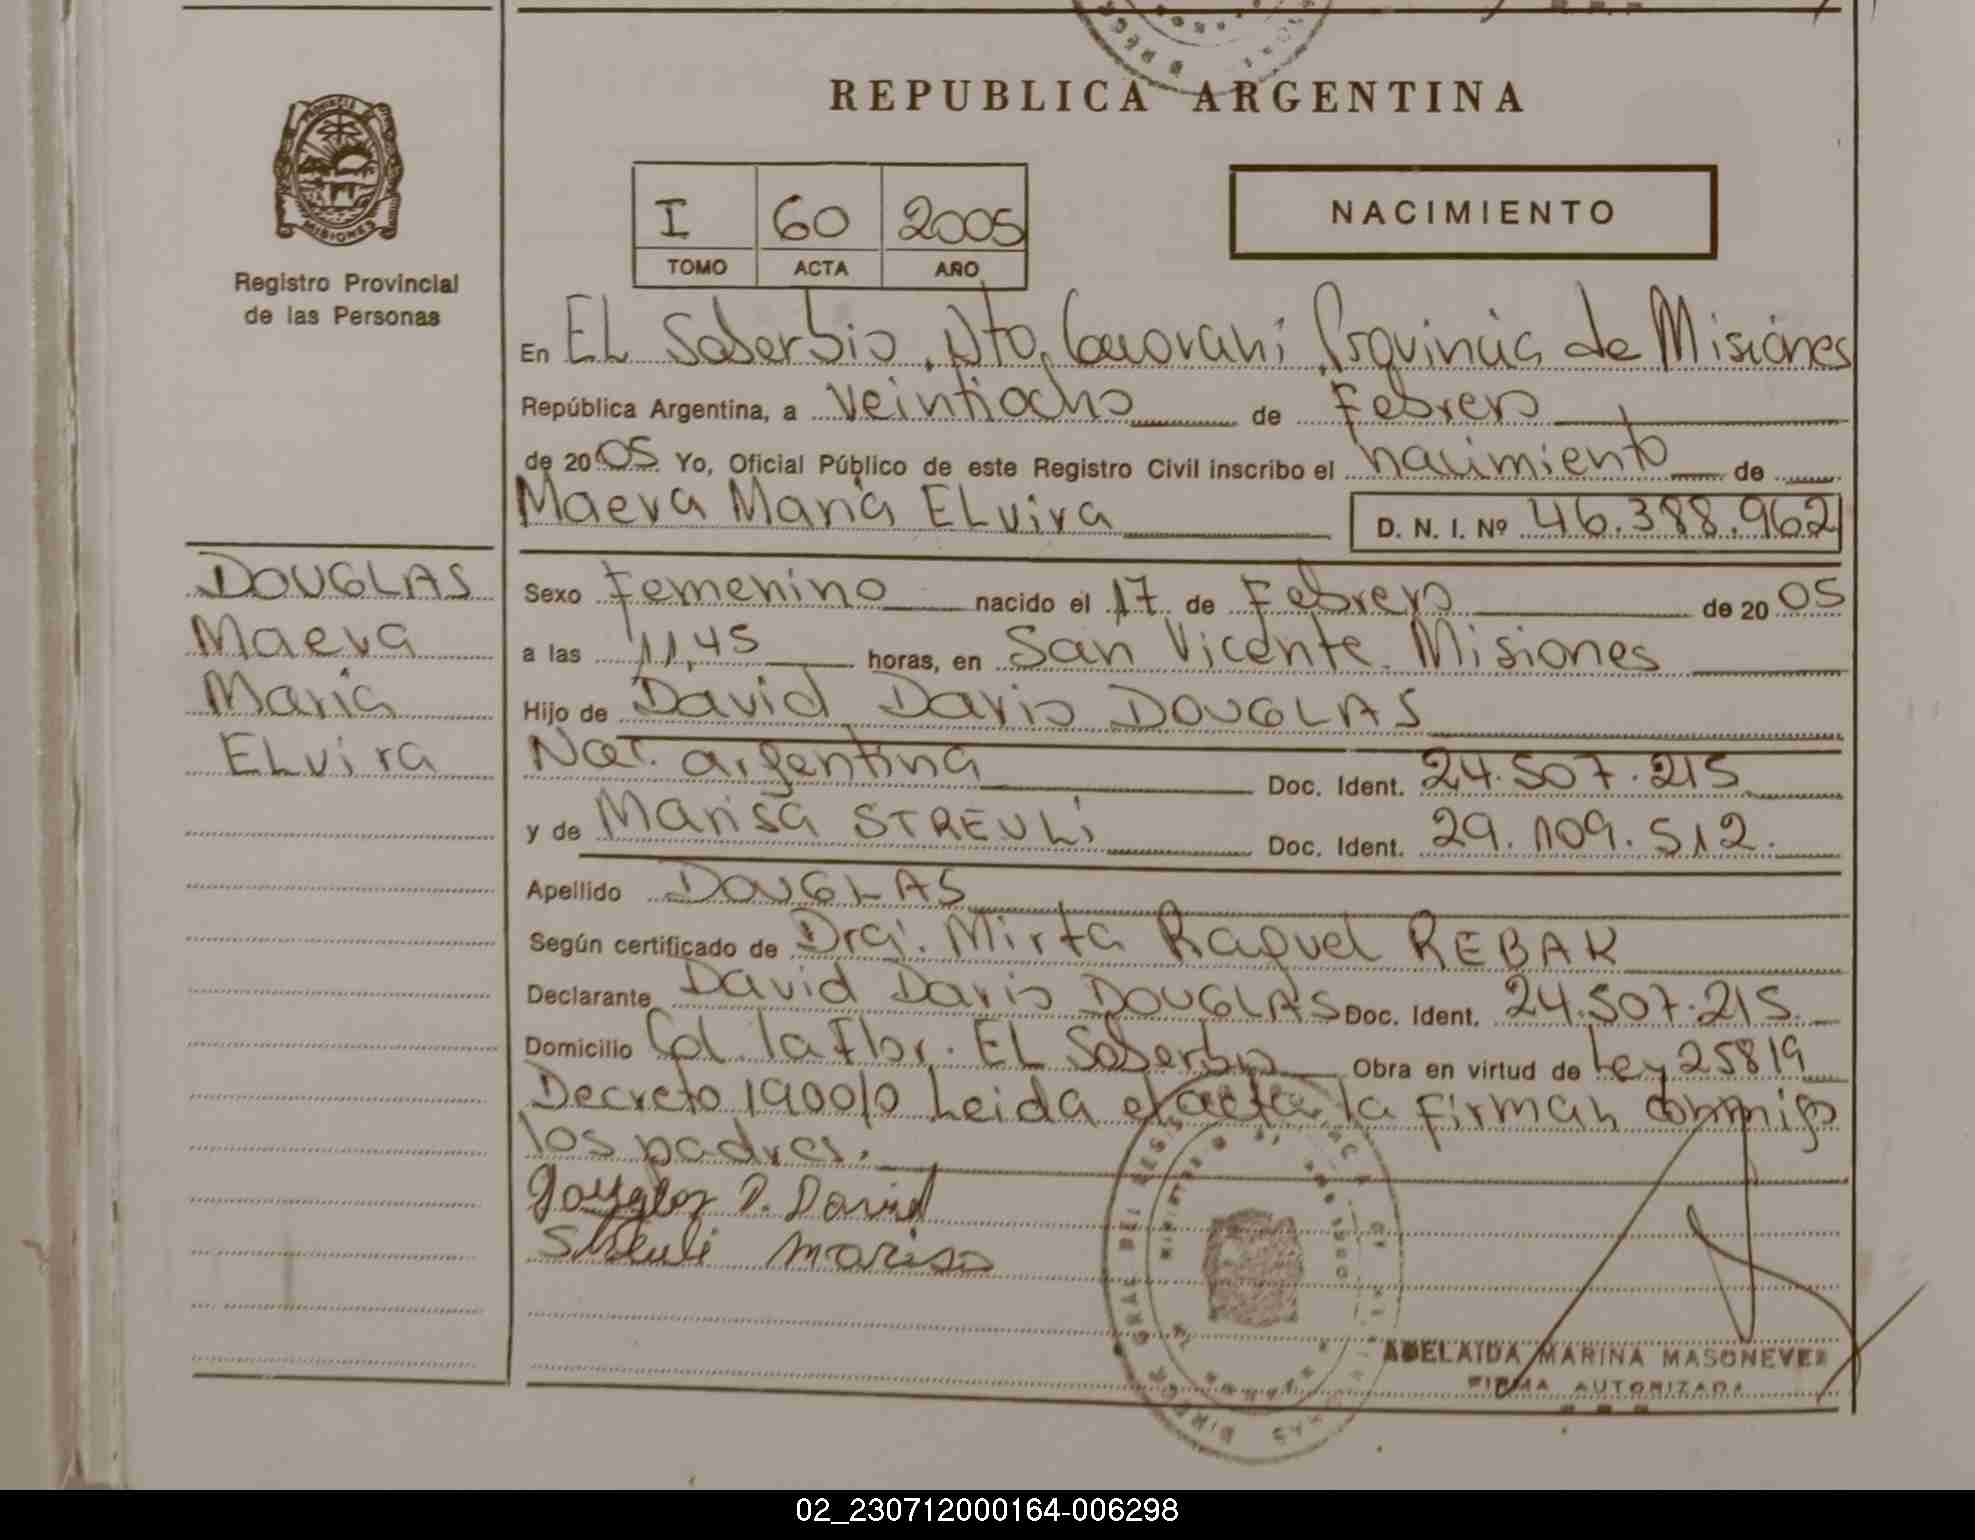 REPUBLICA ARGENTINA
PROVINCIA
MISIONES
Registro Provincial
de las Personas
I 60 2005
TOMO ACTA AÑO
NACIMIENTO
En EL Soberbio, Dto. Guarani Provincia de Misiones
República Argentina, a veintiocho de Febrero
de 2005 Yo, Oficial Público de este Registro Civil inscribo el nacimiento de
Maeva Maria ELvira D. N. I. Nº 46.388.962
DOUGLAS
Maeva
Maria
ELvira
Sexo Femenino nacido el 17 de Febrero de 2005
a las 11,45 horas, en San Vicente. Misiones
Hijo de David Dario DOUGLAS
Nac. argentina Doc. Ident. 24.507.215
y de Marisa STREULi Doc. Ident. 29.109.512.
Apellido DOUGLAS
Según certificado de Dra. Mirta Raquel REBAK
Declarante David Dario DOUGLAS Doc. Ident. 24.507.215.
Domicilio Col. la Flor. EL Soberbio Obra en virtud de Ley 25819
Decreto Leida el acta la firman conmigo
los padres.
Douglas D. David
Streuli Marisa
ADELAIDA MARINA MASONEVER
FIRMA AUTORIZADA
02_230712000164-006298